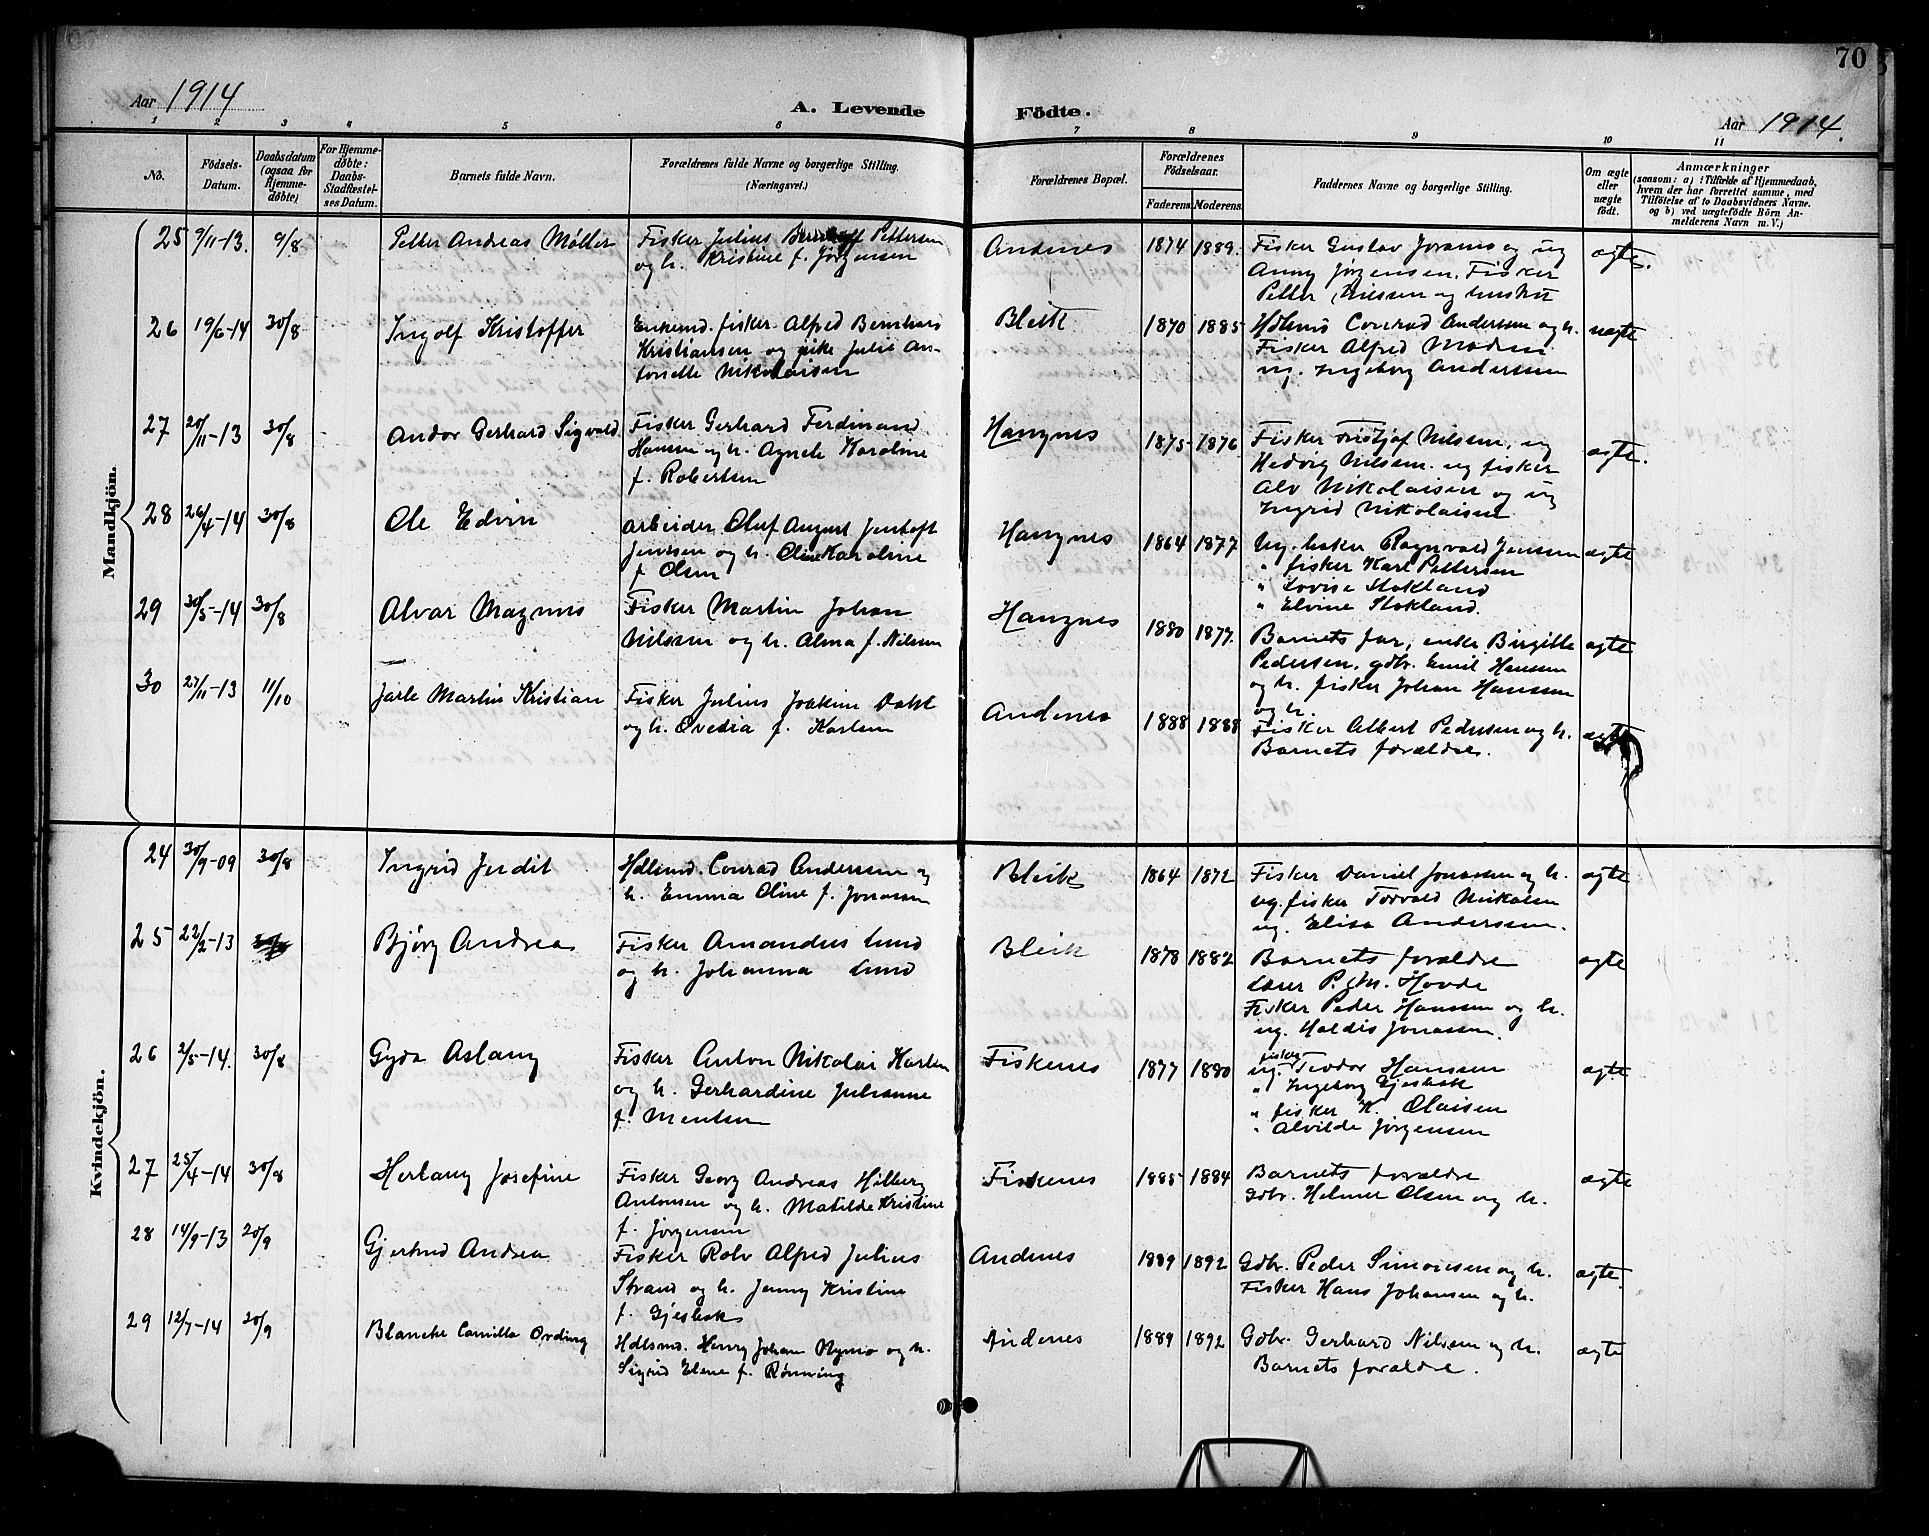 70
Aar 1914
A. Levende Födte.
Aar 1914.
1 2 3 4 5 6 7 8 9 10 11
No.
Födsels-Datum.
Daabsdatum (ogsaa for Hjemme-döbte)
For Hjemme-döbte: Daabs-Stadfæstel-ses Datum.
Barnets fulde Navn.
Forældrenes fulde Navne og borgerlige Stilling.
(Næringsvei.)
Forældrenes Bopæl.
Forældrenes Födselsaar.
Faderens. Moderens.
Faddernes Navne og borgerlige Stilling.
Om ægte eller uægte födt.
Anmærkninger
(saasom: a) i Tilfælde af Hjemmedaab,
hvem der har forrettet samme, med
Tilföielse af to Daabsvidners Navne.
og b) ved uægtefödte Börn An-
melderens Navn m. V.)
Mandkjön.
25 9/11-13. 9/8 Petter Andreas Møller Fisker Julius Pettersen Andenes 1874 1889. Fisker Gustav Jorams og ug
og h. Kristine f. Jørgensen
Anny Jørgensen. Fisker ægte.
Petter Nilssen og hustru
26 19/6-14 30/8 Ingolf Kristoffer Enkemd. fisker Alfred Bernhard Bleik 1870 1885 Hdlsmd Conrad Andersen og h. uægte
Kristiansen og pike Julie An- Fisker Alfred Madsen
tonette Nikolaisen ug. Ingeborg Anderssen
27 20/11-13 30/8 Andor Gerhard Sigvald Fisker Gerhard Ferdinand Haugnes 1875 1876 Fisker Fristjof Nilsen, ug ægte.
Hansen og h. Agnete Karoline Hedvig Nilsen. ug fisker
f. Robertsen Alv Nikolaisen og ug
Ingrid Nikolaisen
28 26/4-14 30/8 Ole Edvin arbeider Oluf August Jentoft Haugnes 1864 1877 Ug. Ragnvald Jenssen ægte
Jenssen og h. Oline Karoline " fisker Karl Pettersen
f. Olsen " Lovise Stokland
" Elvine Stokland.
29 30/5-14 30/8 Alvar Magnus Fisker Martin Johan Haugnes 1880 1877. Barnets far, enke Birgitte ægte
Nilssen og h. Alma f. Nilsen Pedersen, gdbr. Emil Hanssen
og h. fisker Johan Hanssen
og h.
30 27/11-13 11/10 Jarle Martin Kristian Fisker Julius Joakim Dahl Andenes 1888 1888 Fisker Albert Pedersen og h. ægte
og h. Ovedia f. Karlsen Barnets forældre.
Kvindekjön.
24 30/9-09 30/8 Ingrid Judit Hdlsmd. Conrad Andersen og Bleik 1864 1872 Fisker Daniel Jonassen og h. ægte
h. Emma Oline f. Jonassen ug. fisker Torvald Nikolsen
ug. Elisa Anderssen.
25 22/2-13 Bjørg Andrea Fisker Amandus Lund Bleik 1878 1882 Barnets forældre ægte
og h. Johanna Lund Lærer P. M. Hovde
Fisker Peder Hanssen og h.
ug. Haldis Jonassen.
26 2/5-14. 30/8 Gyda Aslaug Fisker Anton Nikolai Karlsen Fiskenes 1877 1880 ug. fisker Teodor Hanssen ægte
og h. Gerhardine Julianne " Ingeborg Gjesbak
f. Mentsen " fisker K. Olaisen
" Alvilde Jørgensen
27 25/4-14 30/8 Herlaug Josefine Fisker Georg Andreas Hilberg Fiskenes 1885 1884 Barnets forældre ægte
Antonsen og h. Matilde Kristine Gdbr. Helmer Olsen og h.
f. Jørgensen
28 14/9-13 20/9 Gjertrud Andrea Fisker Rolv Alfred Julius Andenes 1889 1892 Gdbr. Peder Simonsen og h. ægte.
Strand og h. Jenny Kristine Fisker Hans Johansen og h.
f. Gjesbak
29 12/7-14 20/9 Blanche Camilla Ording Hdlsmd. Henry Johan Nymo og h. Andenes 1889 1892 Gdbr. Gerhard Nilsen og h. ægte
Sigrid Elene f. Rønning Barnets forældre.